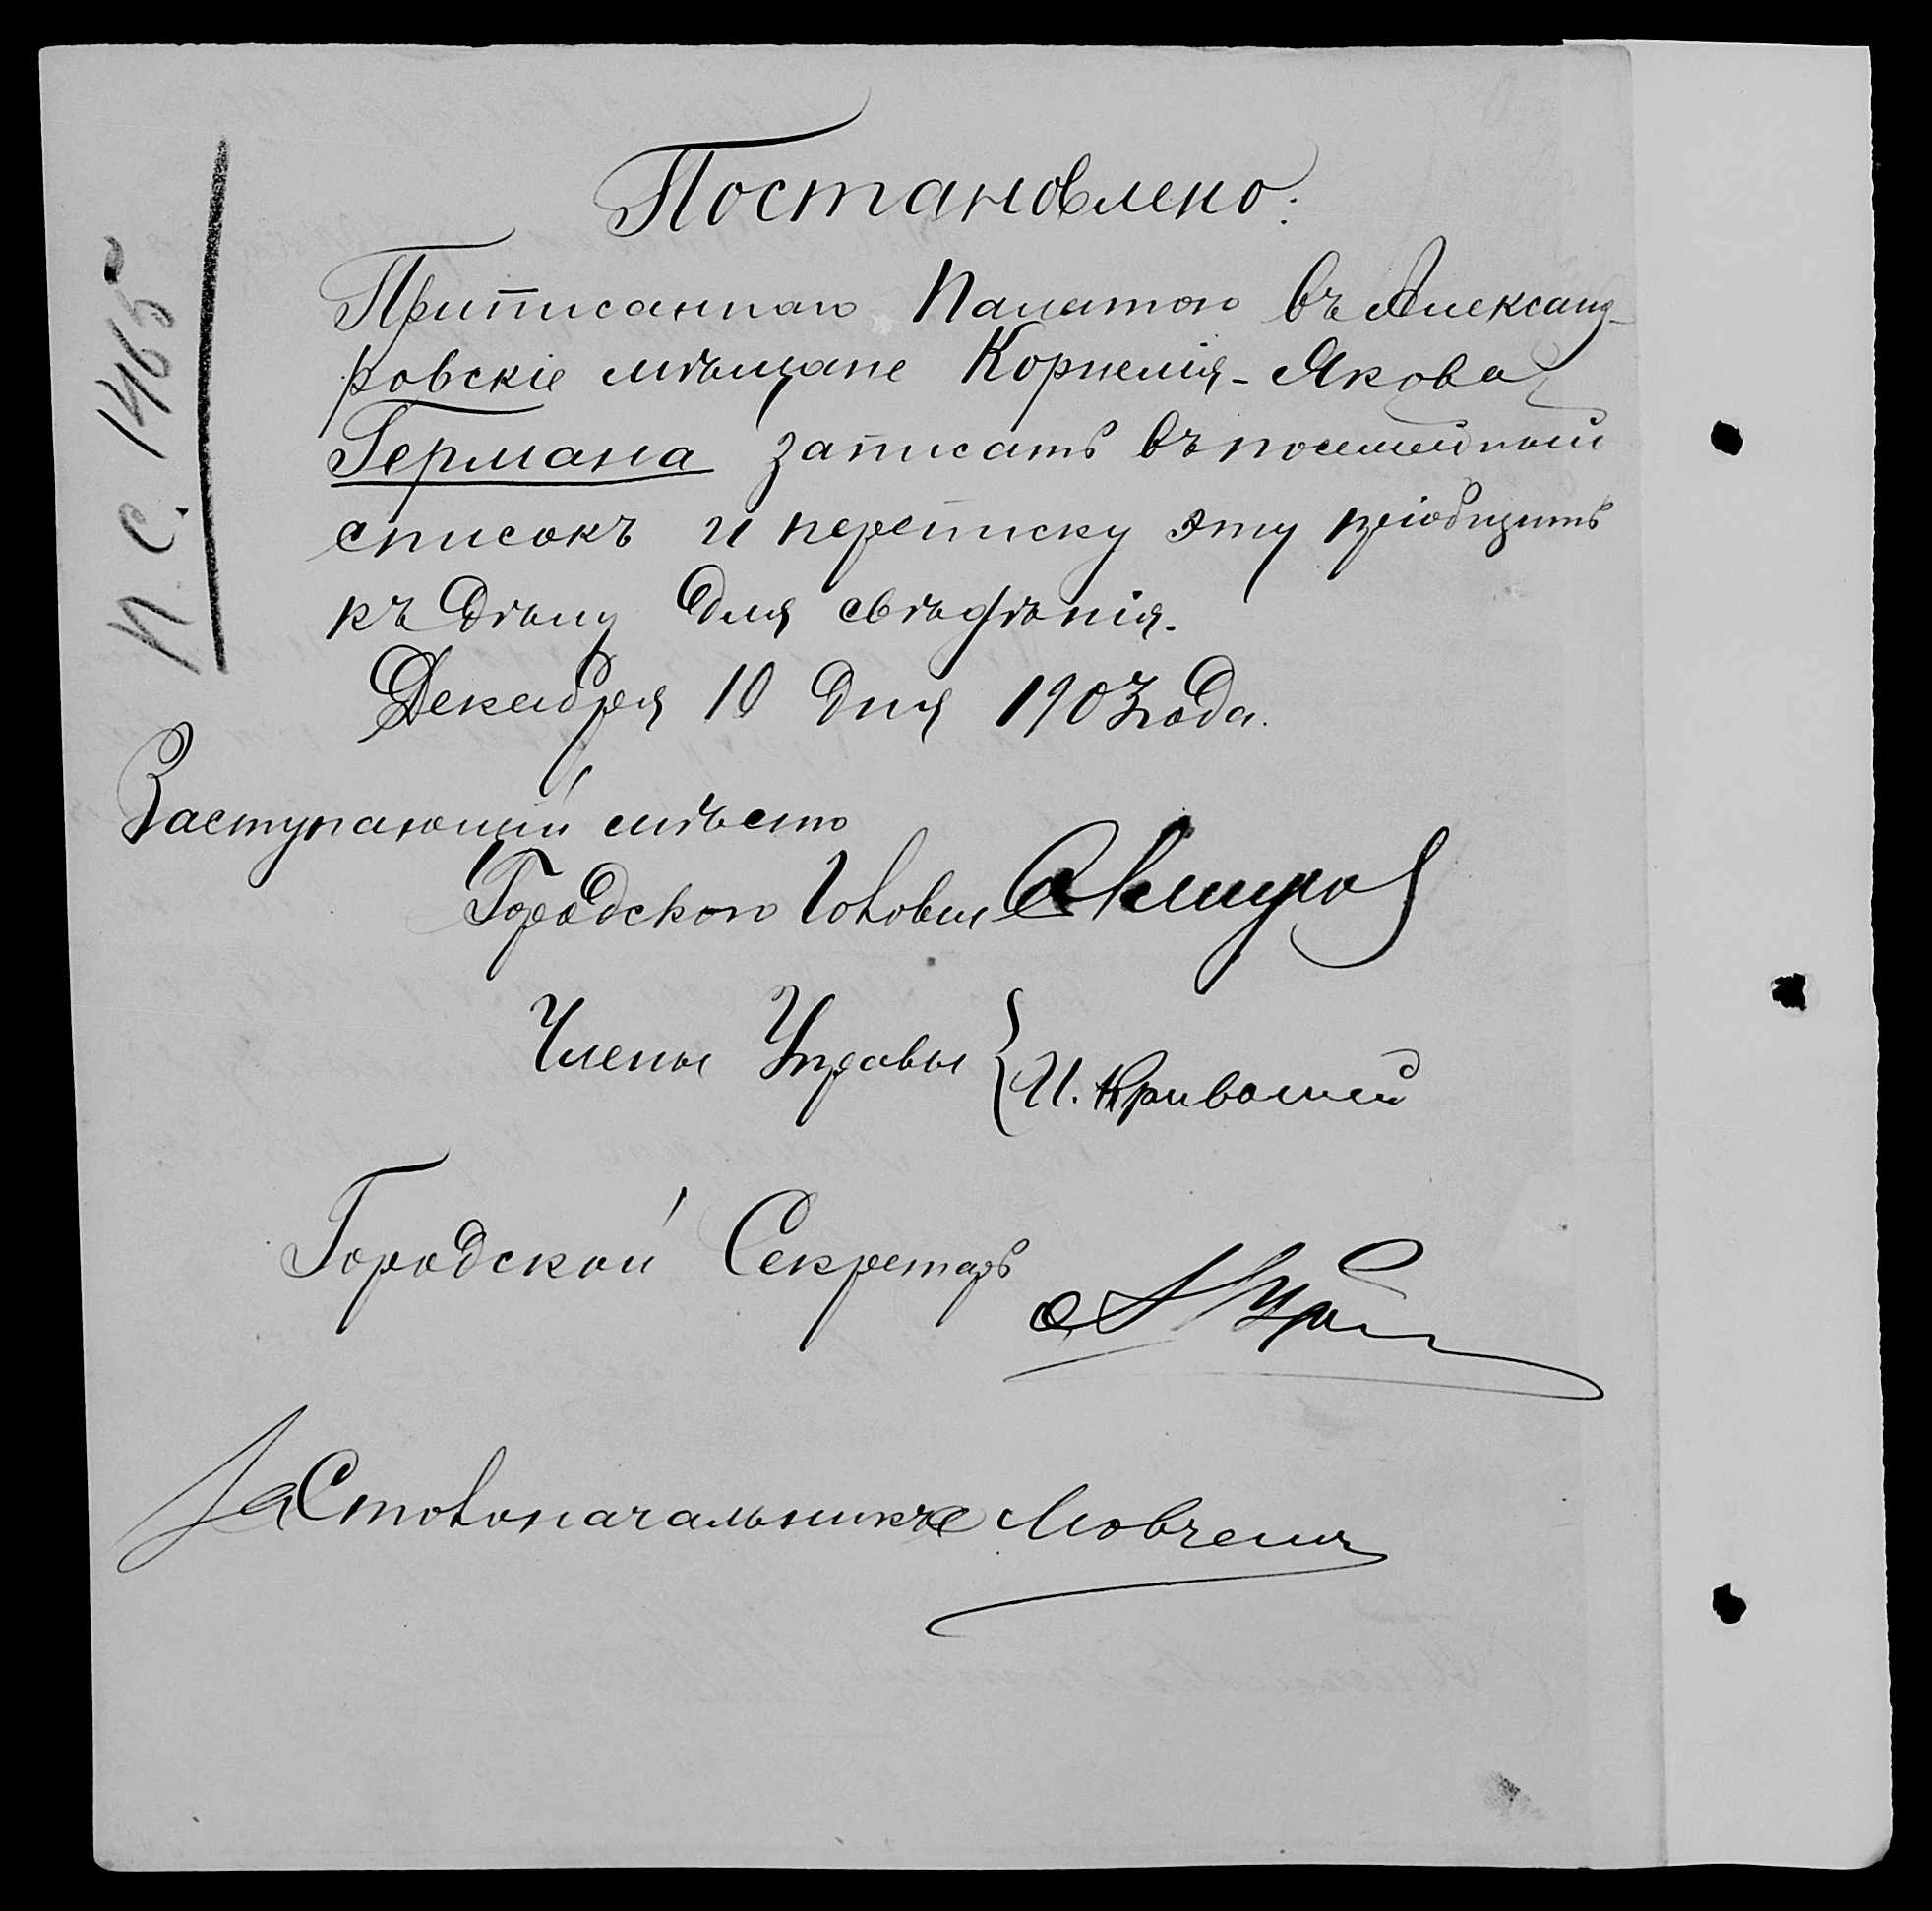 П. С. 1465
Постановлено:
Приписаннаго Палатою въ Александ-
ровскіе мѣщане Корнелія-Якова
Германа записать въ посемейный
списокъ и переписку эту пріобщить
къ дѣлу для свѣдѣнія.
Декабря 10 дня 1903 года.
Заступающій мѣсто
Городского Головы
Члены Управы { И. Кривошей
Городской Секретарь
За Столоначальника